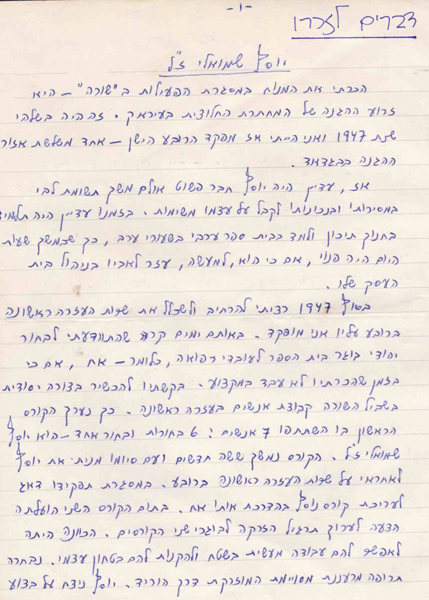 -1-
דברים לזכרו
יוסף שמואלי ז"ל
הכרתי את המנוח במסגרת הפעילות ב"שורה" – היא
זרוע ההגנה של המחתרת החלוצית בעיראק. זה היה בשלהי
שנת 1947 ואני הייתי אז מפקד הרובע הישן – אחד משלשת אזורי
ההגנה בבגדאד.
אז, עדיין היה יוסף חבר פשוט אולם משך תשומת לבי
במסירותו ובנכונותו לקבל על עצמו משימות. בזמנו עדיין היה תלמיד
בחנוך תיכון ולמד בבית ספר ערבי בשעורי ערב, כך שבמשך שעות
היום היה פנוי, אם כי הוא, למעשה, עזר לאביו בניהול בית
העסק שלו.
בסוף 1947 רציתי להרחיב ולשכלל את שרות העזרה הראשונה
ברובע עליו אני מופקד. באותם ימים קרה שהתוודעתי לבחור
יהודי בוגר בית הספר לעובדי רפואה, כלומר – אח, אם כי
בזמן שהכרתיו לא עבד במקצוע. בקשתיו להכשיר בצורה יסודית
בשביל השורה קבוצת אנשים בעזרה ראשונה. כך נערך הקורס
הראשון בו השתתפו 7 אנשים: 6 בחורות ובחור אחד – הוא יוסף
שמואלי ז"ל. הקורס נמשך ששה חדשים ועם סיומו מניתי את יוסף
לאחראי על שרות העזרה הראשונה ברובע. במסגרת תפקידו דאג
לעריכת קורס נוסף בהדרכת אותו אח. בתום הקורס השני הועלתה
הצעה לערוך תרגיל הזרקה לבוגרי שני הקורסים. הכוונה היתה
לאפשר להם עבודה מעשית בשטח ולהקנות להם בטחון עצמי. נבחרה
תרופה מרעננת מסויימת המוזרקת דרך הוריד. יוסף ניצח על בצוע